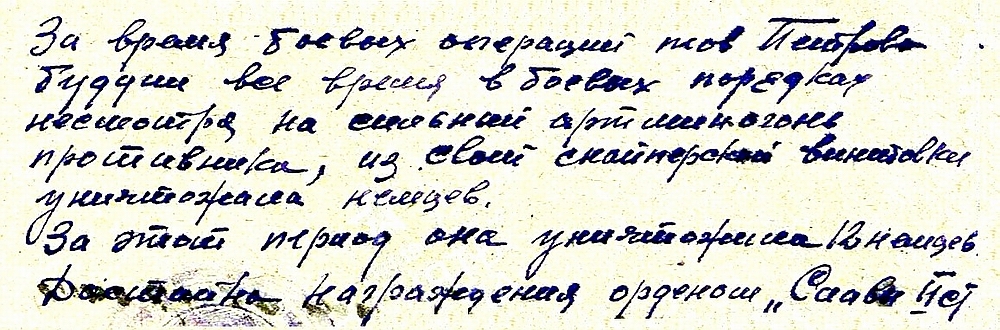 За время боевых операций тов Петрова
будучи все время в боевых порядках
несмотря на сильный артминогонь
противника, из своей снайперской винтовки
уничтожала немцев.
За этот период она уничтожила 12 немцев
Достойна награждения орденом „Славы II ст